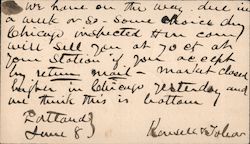 We have on the way, due in
a week or so- some choice dry
Chicago inspected Hm corn
will sell you at 70 ct at
your station if you accept
by return mail - market closed
higher in Chicago yesterday and
we think this is bottom
Portland
June 8